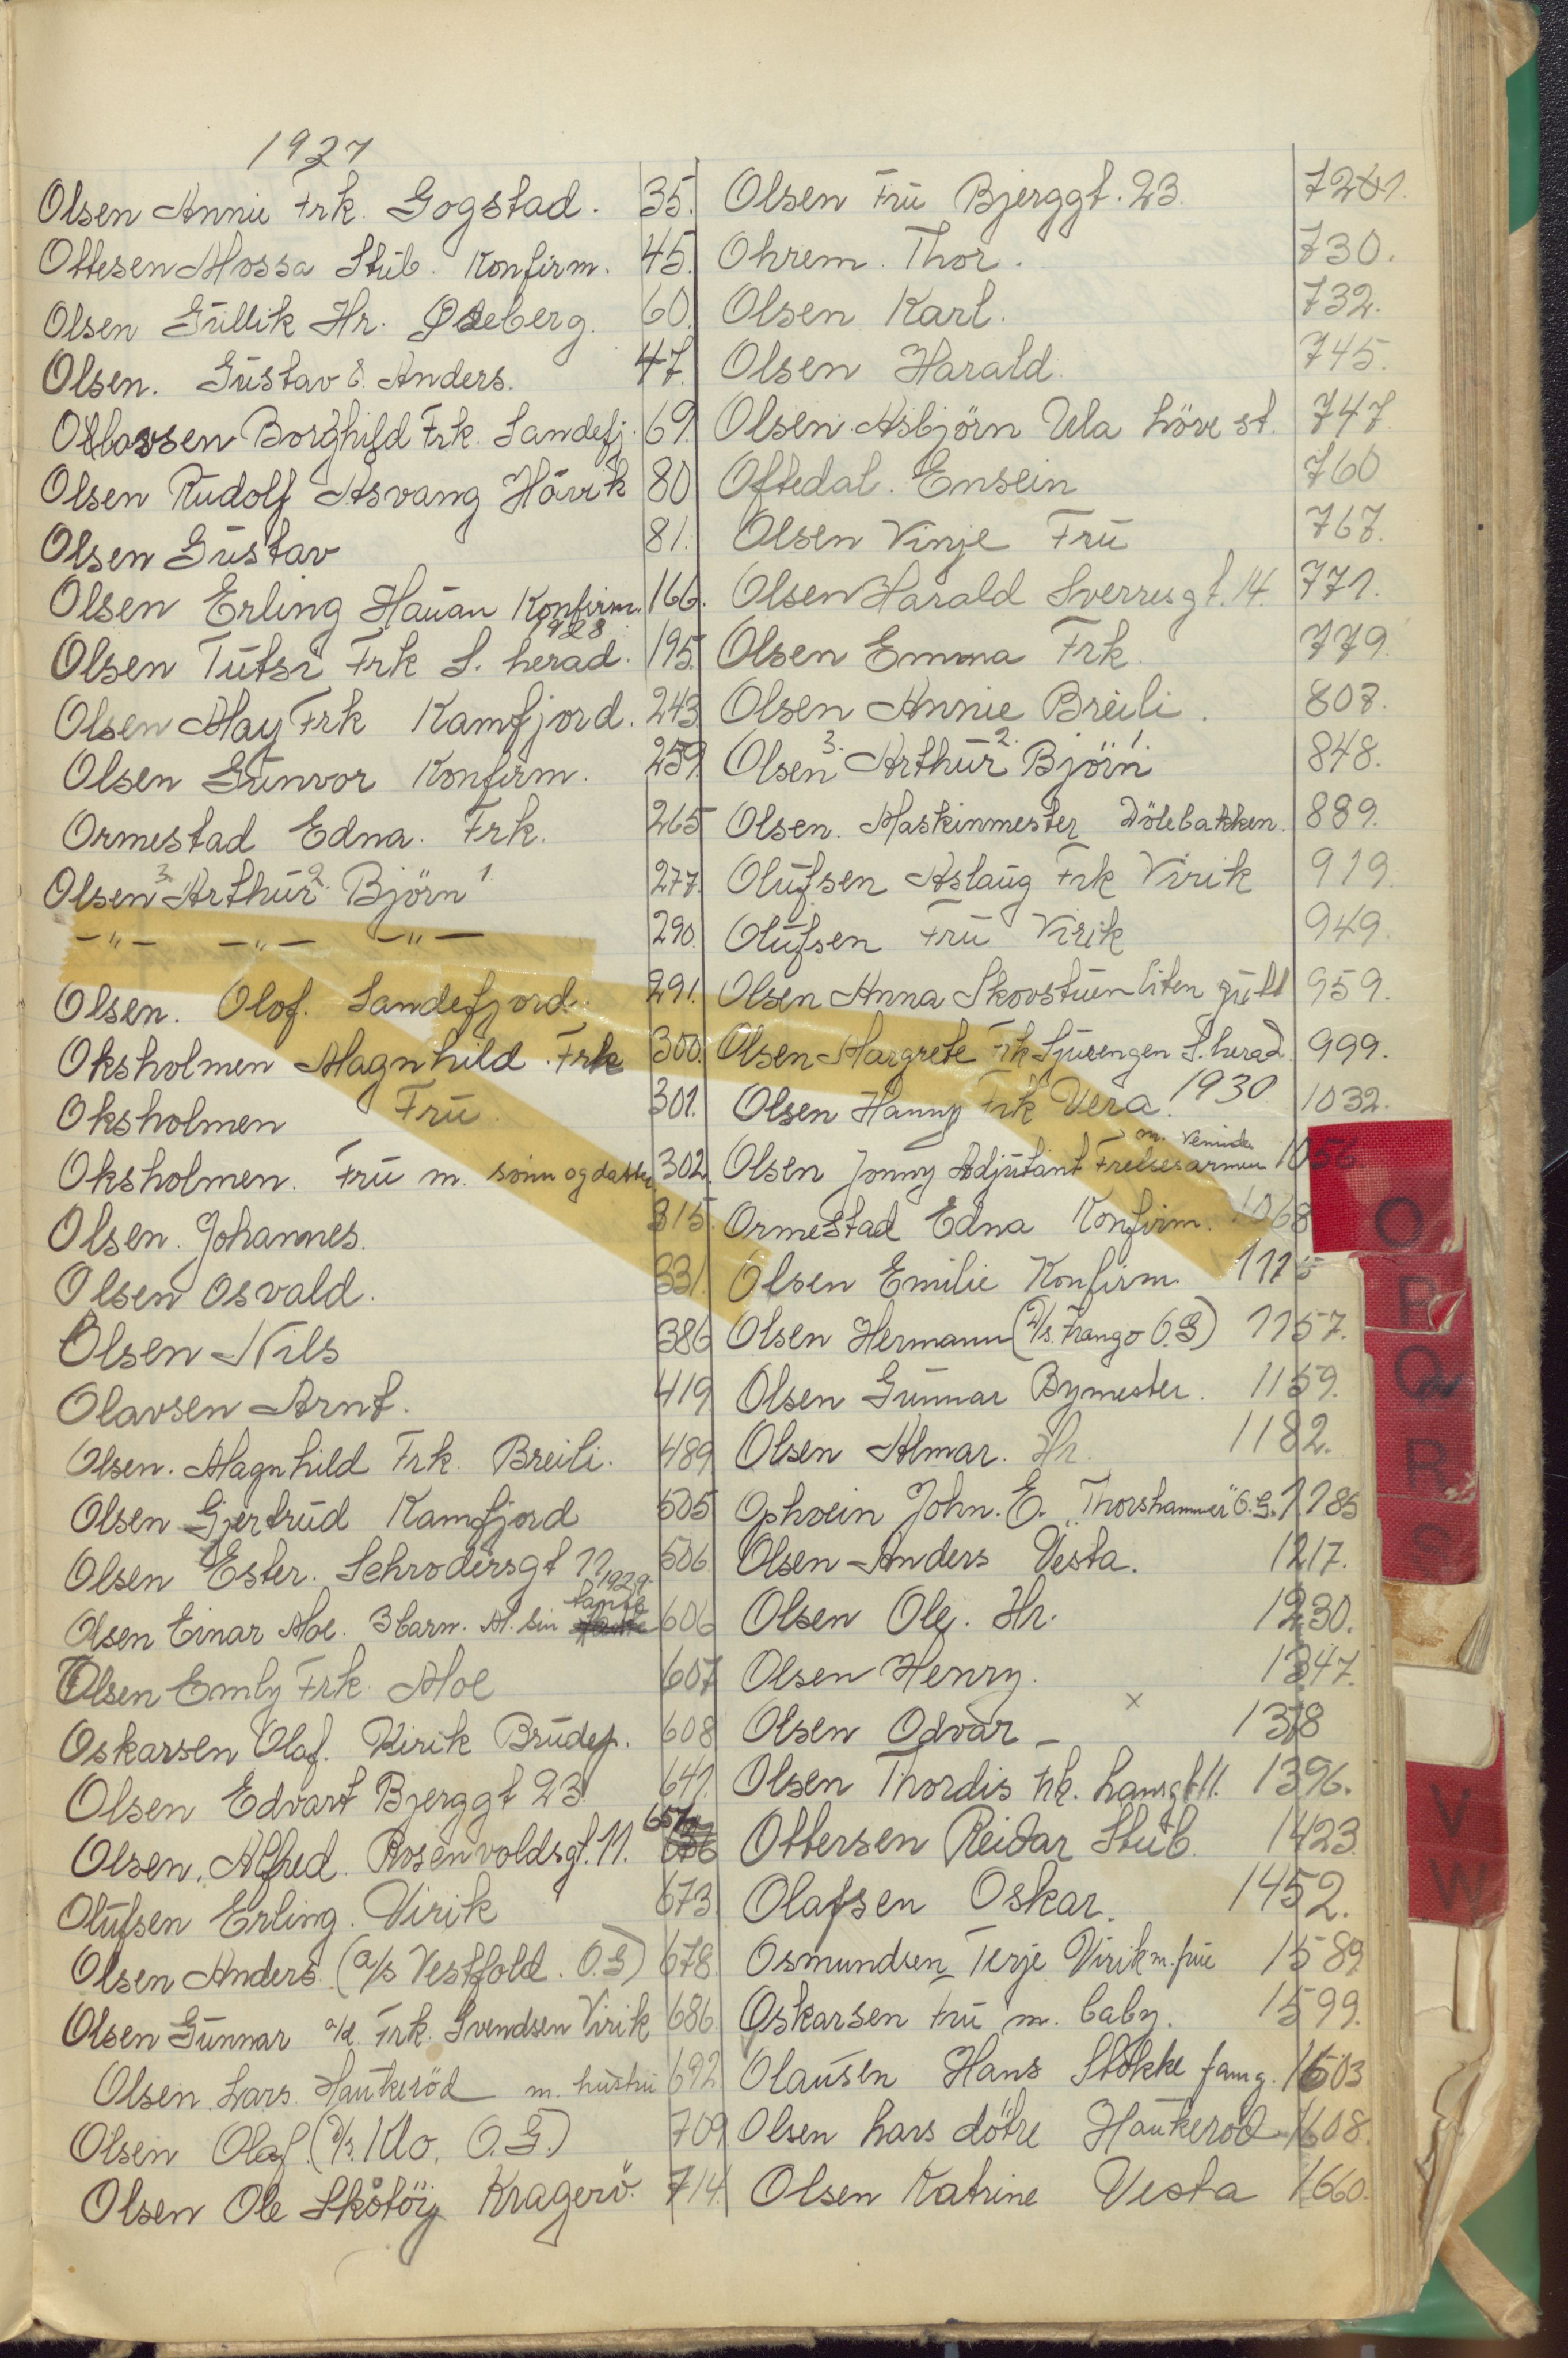 1927
Olsen Annie Frk. Gogstad. 35.
Ottesen Mossa Stub. Konfirm. 45.
Olsen Gullik Hr. Oseberg. 60.
Olsen. Gustav & Anders. 47.
Olavsen Borghild Frk. Sandefj. 69.
Olsen Rudolf Asvang Håvik 80
Olsen Gustav 81.
Olsen Erling Hauan Konfirm. 166.
1928
Olsen Tutsi Frk S. herad. 195.
Olsen May Frk Kamfjord. 243.
Olsen Gunvor Konfirm. 259.
Ormestad Edna. Frk. 265
Olsen 3. Arthur 2. Björn 1. 277.
—"— —"— —"— 290.
Olsen. Olof. Sandefjord. 291.
Oksholmen Magnhild. Frk 300.
Oksholmen Fru 301.
Oksholmen. Fru m. sönn og datter 302.
Olsen. Johannes. 315.
Olsen Osvald. 331.
Olsen Nils 386
Olavsen Arnt. 419
Olsen. Magnhild Frk. Breili. 489
Olsen Gjertrud Kamfjord 505
Olsen Ester. Schrodersgt 11 506
1929
Olsen Einar Moe. 3 barn. M. sin tante 606
Olsen Emly Frk. Moe 607
Oskarsen Olaf. Virik Brudep. 608
Olsen Edvart Bjerggt 23. 641.
Olsen, Alfred. Rosenvoldsgt. 11. 657
Olufsen Erling. Virik 673.
Olsen Anders. (a/s Vestfold. O.S) 678.
Olsen Gunnar a/d. Frk. Svendsen Virik 686.
Olsen Lars. Haukeröd m. hustru 692
Olsen Olaf. (a/s. Klo. O.S.) 709
Olsen Ole Skåtöy Kragerö. 714.
Olsen Fru Bjerggt. 23. 721.
Ohrem. Thor. 730.
Olsen Karl. 732.
Olsen Harald. 745.
Olsen Asbjörn Ula Löve st. 747.
Oftedal. Ensein 760
Olsen Vinje Fru 767.
Olsen Harald Sverresgt. 14. 771.
Olsen Emma Frk. 779.
Olsen Annie Breili. 808.
Olsen 3. Arthur 2. Björn 1. 848.
Olsen. Maskinmester Dölebakken. 889.
Olufsen Aslaug Frk Virik 919.
Olufsen Fru Virik 949.
Olsen Anna Skovstuen liten gutt 959.
Olsen Margrete Frk Sjuengen S. herad. 999.
Olsen Hanny Frk Vera. 1930 1032.
Olsen Jonny Adjutant Frelsesarmeen m. veninde 1056
Ormestad Edna Konfirm. 1068
Olsen Emilie Konfirm. 1115
Olsen Hermann (a/s. Frango O.S) 1157.
Olsen Gunnar Bymester. 1159.
Olsen Almar. Hr. 1182.
Ophvein John. E. "Thorshammer" O.S. 1185
Olsen Anders Vesta. 1217.
Olsen Ole. Hr. 1230.
Olsen Henry. 1347.
Olsen Odvar – x 1378
Olsen Thordis Frk. Langgt 11. 1396.
Ottersen Reidar Stub. 1423.
Olafsen Oskar. 1452.
Osmundsen Terje Virik m. frue 1589
Oskarsen Fru m. baby. 1599.
Olausen Hans Stokke fam.g. 1603
Olsen Lars dötre Haukeröd 1608.
Olsen Katrine Vesta 1660.
O
P
Q
R
S
V
W